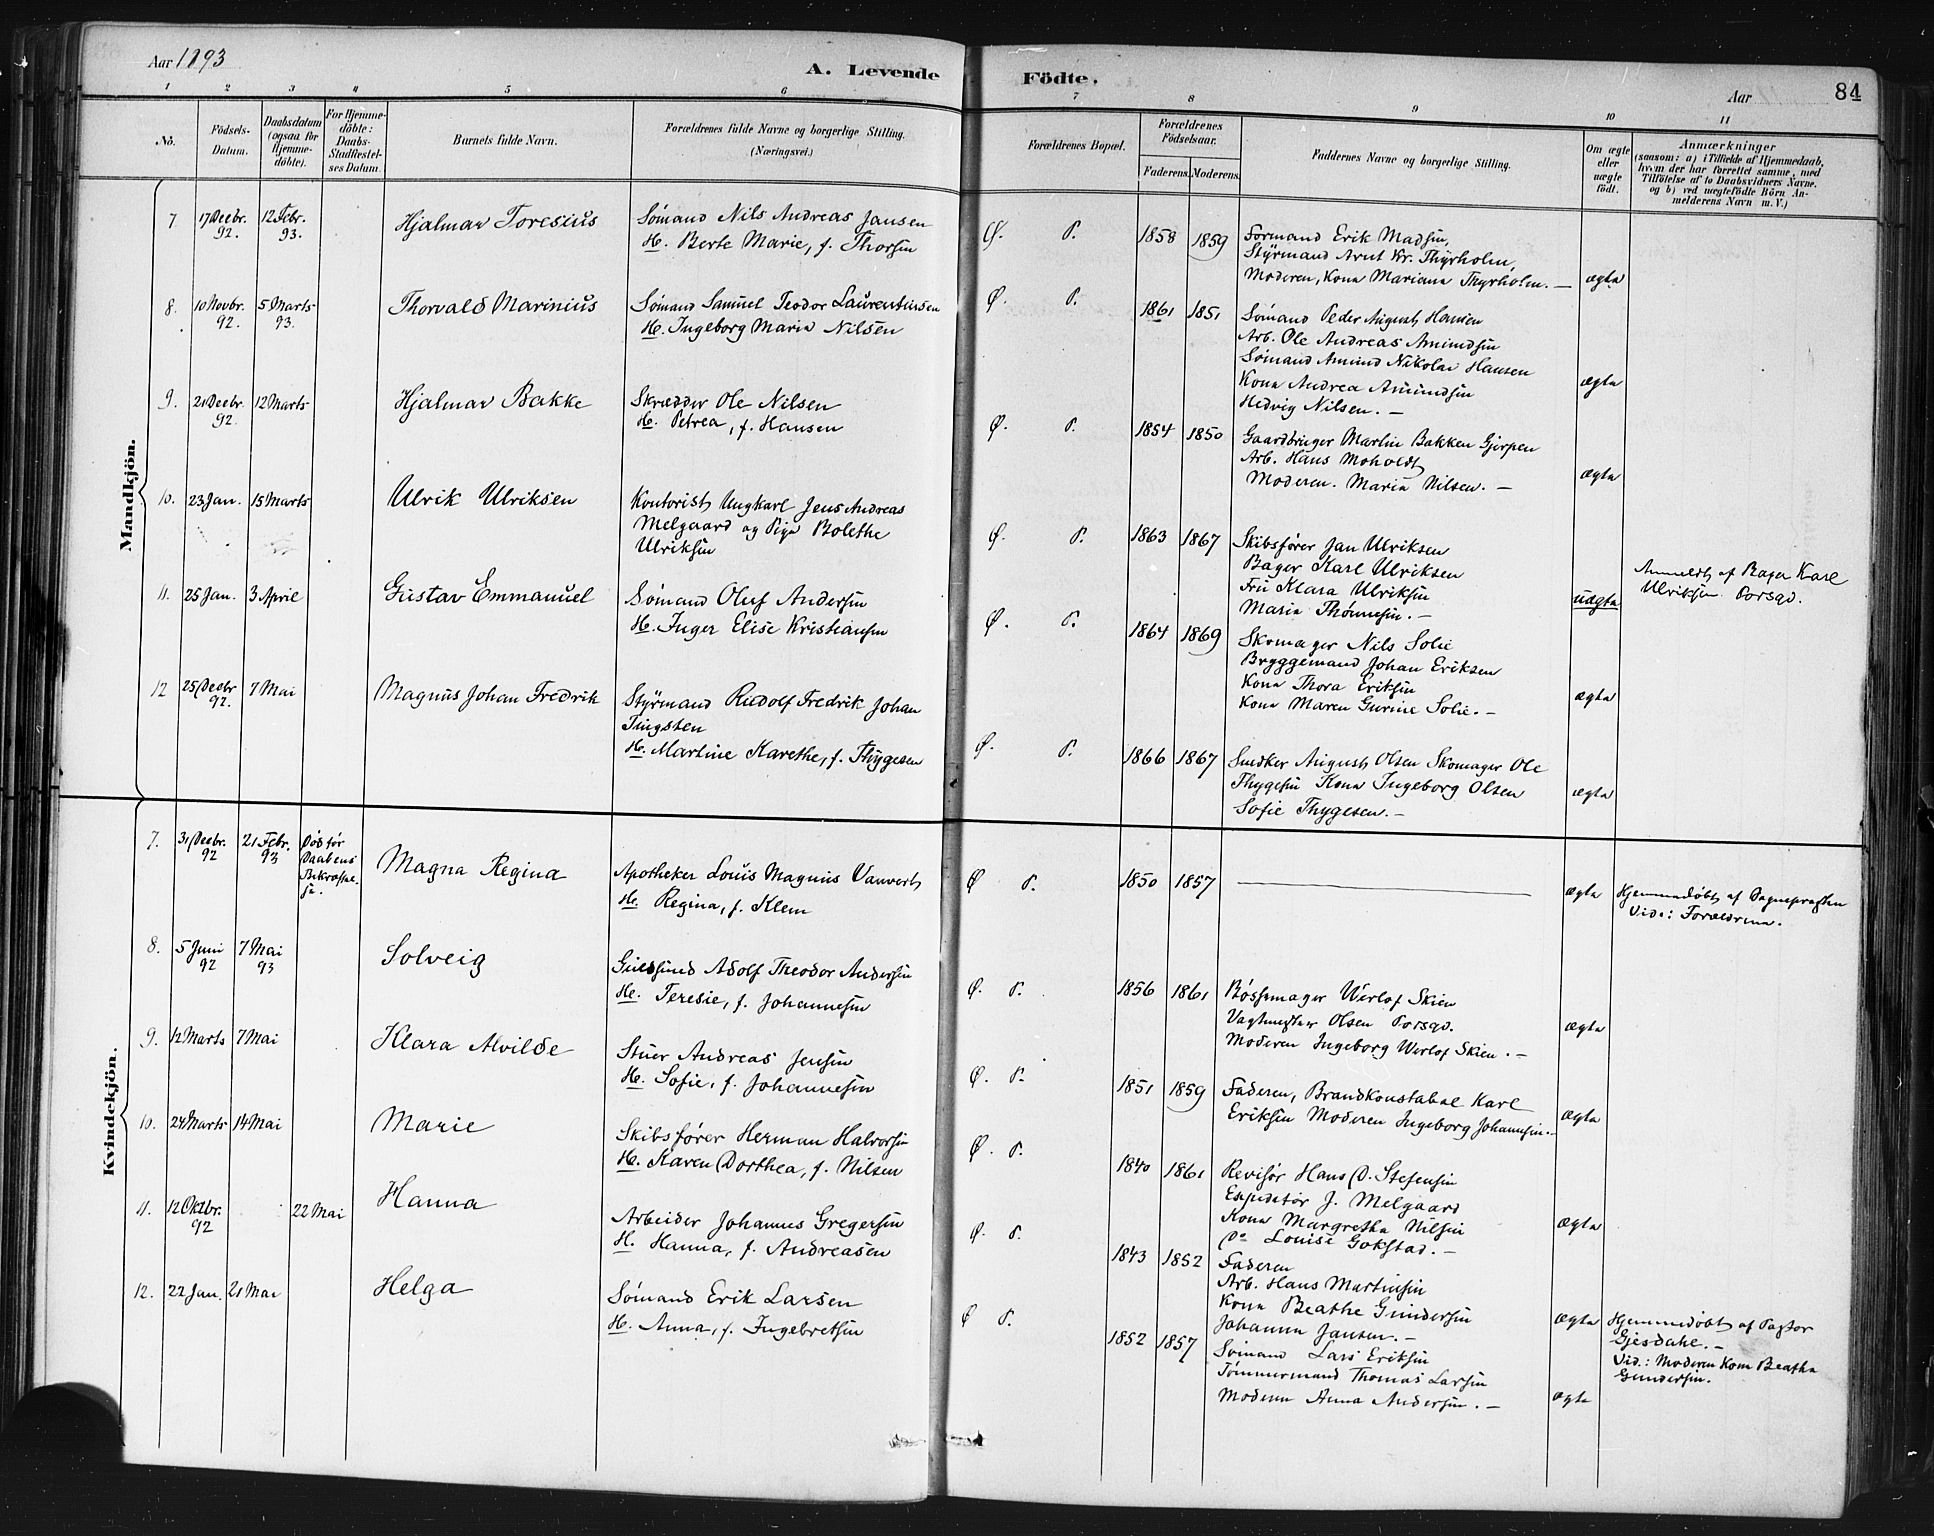 Aar 1893
A. Levende Födte.
Aar
84
1 2 3 4 5 6 7 8 9 10 11
No.
Födsels-
Datum.
Daabsdatum
(ogsaa for
Hjemme-
döbte).
For Hjemme-
döbte:
Daabs-
Stadfæstel-
ses Datum.
Barnets fulde Navn.
Forældrenes fulde Navne og borgerlige Stilling.
(Næringsvei.)
Forældrenes Bopæl.
Forældrenes
Födselsaar.
Faderens. Moderens.
Faddernes Navne og borgerlige Stilling.
Om ægte
eller
uægte
födt.
Anmærkninger
(saasom: a) i Tilfælde af Hjemmedaab,
hvem der har forrettet samme, med
Tilföielse af to Daabsvidners Navne,
og b) ved uægtefödte Börn An-
melderens Navn m. V.)
Mandkjön.
7 17 Decbr. 92. 12 Febr. 93. Hjalmar Toresius
Sømand Nils Andreas Jansen
H. Berte Marie, f. Thorsen
Ø. P. 1858 1859
Formand Erik Madsen,
Styrmand Arnt Kr. Thyrholm,
Moderen, Kona Mariana Thyrholm. — ægte
8. 10 Novbr. 92. 5 Marts 93. Thorvald Marinius
Sømand Samuel Teodor Laurentiusen
H. Ingeborg Maria Nilsen
Ø. P. 1861 1851
Sømand Peder August Hansen
Arb. Ole Andreas Amundsen
Sømand Amund Nikolai Hansen
Kona Andrea Amundsen
Hedvig Nilsen. — ægte
9. 21 Decbr. 92. 12 Marts Hjalmar Bakke
Skrædder Ole Nilsen
H. Petrea, f. Hansen
Ø. P. 1854 1850
Gaardbruger Martin Bakken Gjerpen
Arb. Hans Moholdt
Moderen. Maria Nilsen. — ægte
10. 23 Jan. 15 Marts Ulrik Ulriksen
Kontorist Ungkarl Jens Andreas
Melgaard og Pige Bolethe
Ulriksen
Ø. P. 1863 1867
Skibsfører Jan Ulriksen
Bager Karl Ulriksen
Fru Klara Ulriksen
Maria Thønnesen. — uægte
Anmeldt af Bager Karl
Ulriksen Porsgr.
11. 25 Jan. 3 April Gustav Emmanuel
Sømand Oluf Andersen
H. Inger Elise Kristiansen
Ø. P. 1864 1869
Skomager Nils Solie
Bryggemand Johan Eriksen
Kona Thora Eriksen
Kona Maren Gurine Solie. — ægte
12 25 Decbr 92. 7 Mai Magnus Johan Fredrik
Styrmand Rudolf Fredrik Johan
Tingsten
H. Martine Karethe, f. Thygesen
Ø. P. 1866 1867
Snedker August Olsen Skomager Ole
Thygesen Kona Ingeborg Olsen
Sofie Thygesen. — ægte
Kvindekjön.
7. 31 Decbr. 92 21 Febr. 93 Død før
Daabens
Bekræftel-
se.
Magna Regina
Apotheker Louis Magnus Vauvert
H. Regina, f. Klem
Ø P. 1850 1857 — ægte
Hjemmedøbt af Sognepræsten
Vid.: Forældrene.
8. 5 Juni 92 7 Mai 93 Solveig
Guldsmed Adolf Theodor Andersen
H. Teresie, f. Johannesen
Ø. P. 1856 1861
Bøssemager Werlof Skien
Vagtmester Olsen Porsgr.
Moderen Ingeborg Werlof Skien. — ægte
9. 12 Marts 7 Mai Klara Alvilde
Stuer Andreas Jensen
H. Sofie, f. Johannesen
Ø. P. 1851 1859
Faderen, Brandkonstabel Karl
Eriksen Moderen Ingeborg Johannesen. — ægte
10. 24 Marts 14 Mai Marie
Skibsfører Herman Halvorsen
H. Karen Dorthea, f. Nilsen
Ø. P. 1840 1861
Revisor Hans D. Stefensen
Expeditør J. Melgaard
Kona Margretha Nilsen
Do Louise Gokstad. — ægte
11. 12 Oktbr. 92 22 Mai Hanna
Arbeider Johannes Gregersen
H. Hanna, f. Andreasen
Ø. P. 1843 1852
Faderen
Arb. Hans Martinsen
Kona Beathe Gundersen
Johanna Jansen. — ægte
Hjemmedøbt af Pastor
Gjesdahl. —
Vid.: Moderen Kona Beatha
Gundersen.
12. 22 Jan. 21 Mai Helga
Sømand Erik Larsen
H. Anna, f. Ingebretsen
Ø P. 1852 1857
Sømand Lars Eriksen
Tømmermand Thomas Larsen
Moderen Anna Andersen. — ægte